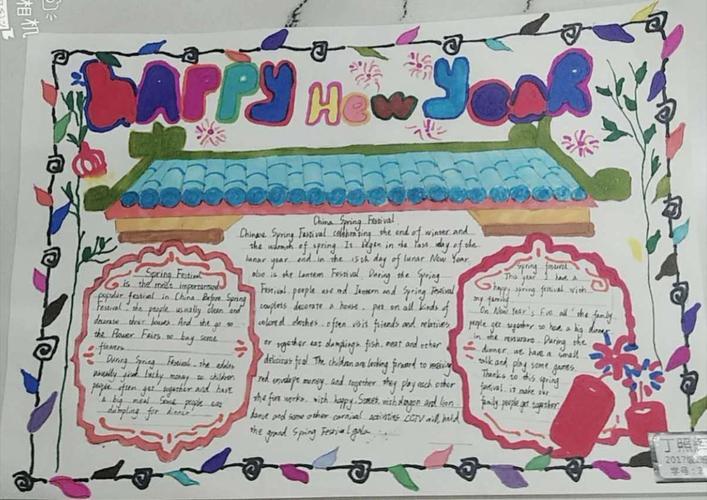 HAPPY New YeaR
China Spring Festival
Chinese Spring Festival celebrating the end of winter and
the warmth of spring. It began in the last day of the
lunar year, and in the 15th day of lunar New Year.
also is the Lantern Festival During the Spring
Festival, people use red lantern and Spring Festival
couplets decorate a house, put on all kinds of
colored clothes, often visit friends and relatives
or together eat dumplings, fish, meat and other
delicious food. The children are looking forward to receiving
red envelope money, and together they play each other
the fire works, with happy. Street with dragon and lion
dance and some other carnival activities CCTV will held
the grand Spring Festival gala
Spring Festival
is the most important
popular festival in China Before Spring
Festival, the people usually clean and
decorate their houses And they go to
the Flower Fairs to buy some
flowers
During Spring Festival, the adults
usually give lucky money to children
people often get together and have
a big meal Some people eat
dumpling for dinner
Spring
This year, I have a
happy spring festival with
my family
On New Year's Eve, all the family
people get together to have a big dinner
in the restaurant. During the
dinner, we have a small
talk and play some games.
Thanks to this spring
festival, it make our
family people get together
相机
丁照
2017级
学号:2